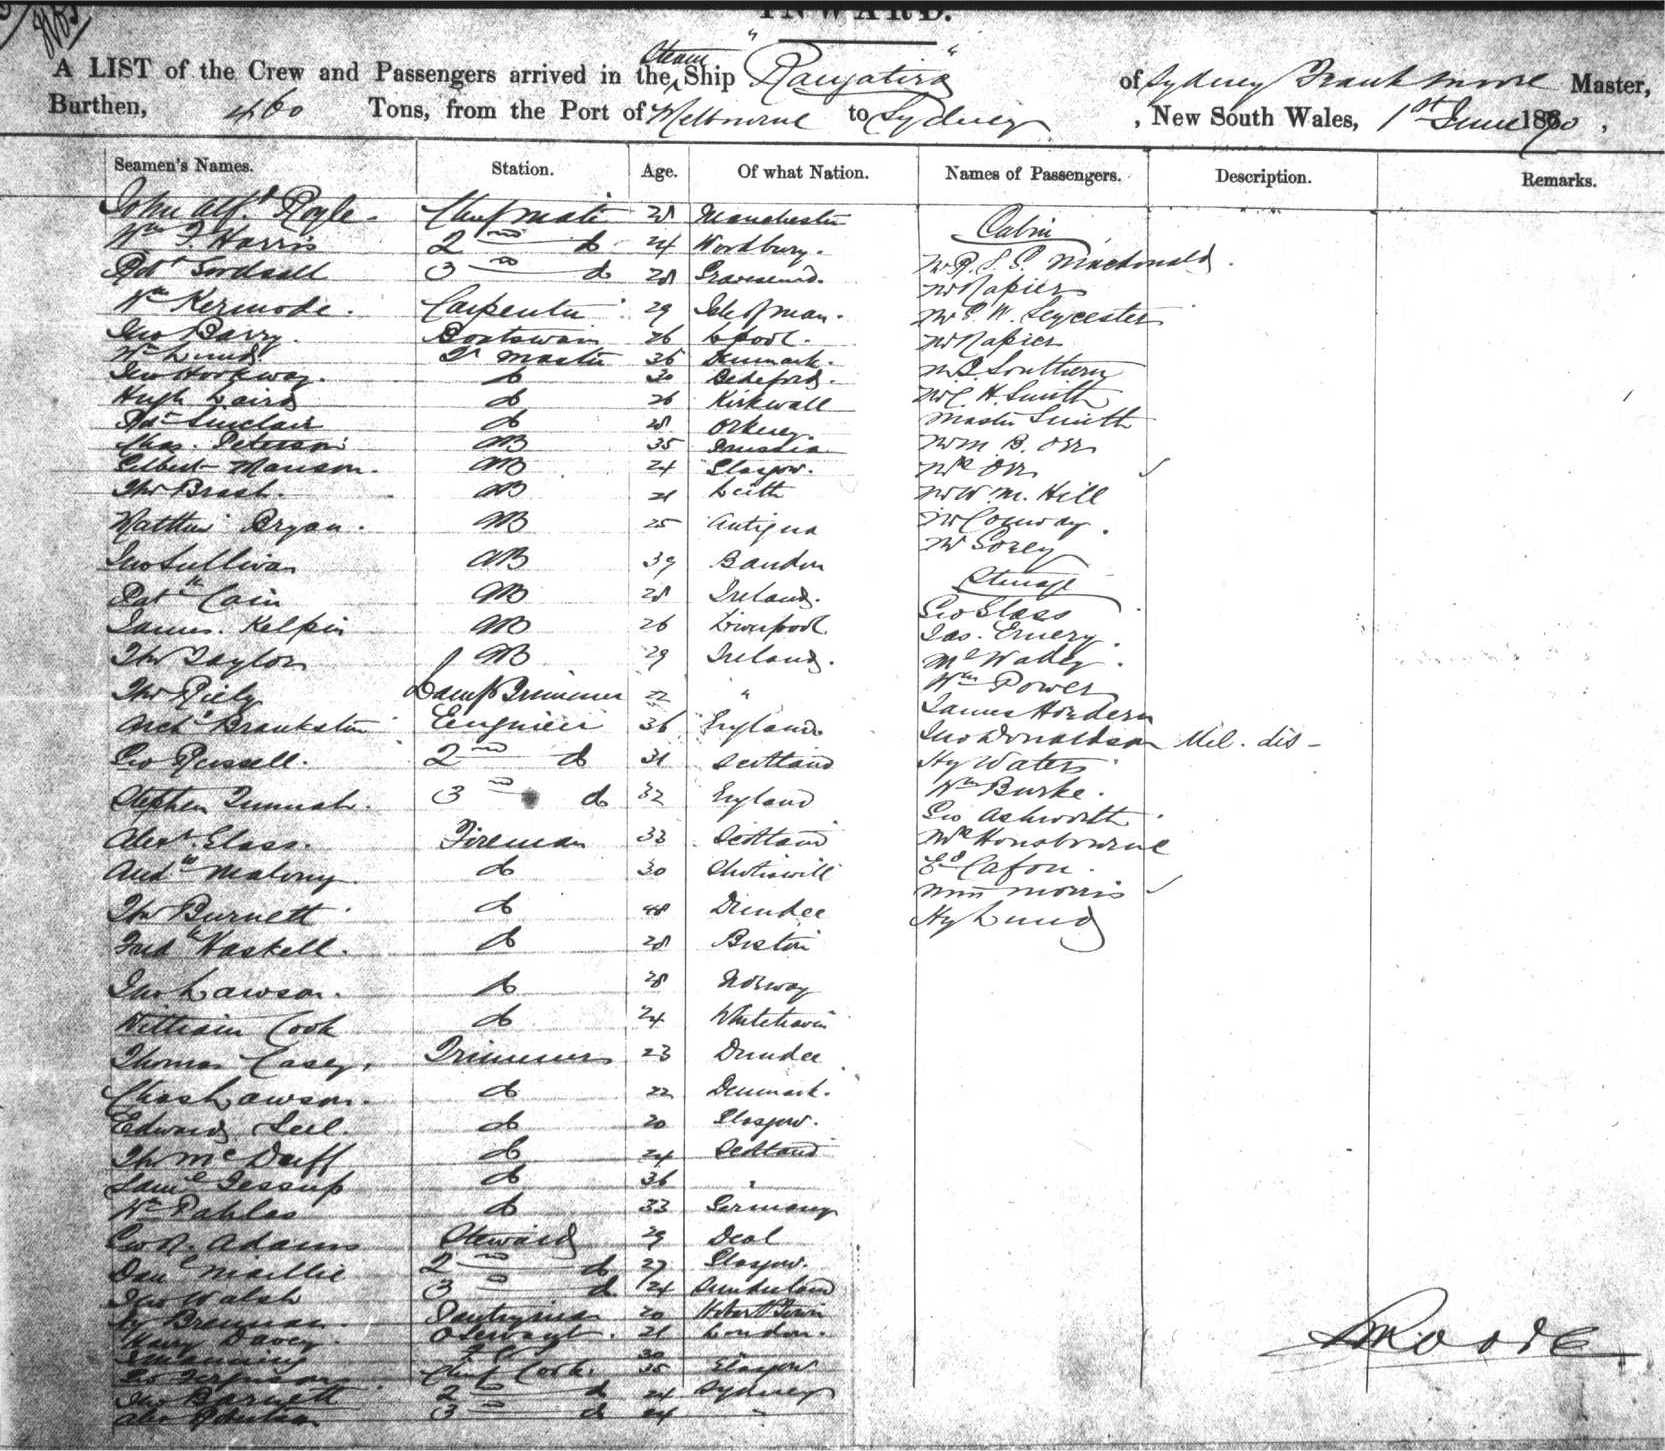 INWARD.
A LIST of the Crew and Passengers arrived in the Steam Ship "Rangatira" of Sydney Frank Moore Master,
Burthen, 460 Tons, from the Port of Melbourne to Sydney, New South Wales, 1st June 1870,
Seamen's Names. Station. Age. Of what Nation. Names of Passengers. Description. Remarks.
John Alfd Royle. Chief Mate 28 Manchester
Cabin
Wm F. Harris 2nd do 24 Woodbury.
Robt 3rd do 28 Gravesend.
Mr R. S. G. Macdonald.
Mr Napier
Wm Kermode. Carpenter 29 Isle of Man.
Mr E. W. Leycester
Jno Barry. Boatswain 26 L'pool.
Mr Napier
Wm Lund Qr Master 36 Denmark.
Mr Southern
Jno Hookway. do 30 Bideford.
Mr C. H. Smith
Hugh Laird do 26 Kirkwall
Master Smith
Sinclair do 28 Orkney.
Mr M. B. Orr
Chas. Peterson AB 35
Mrs Orr
Gilbert Manson. AB 24 Glasgow.
Mr W. M. Hill
Thos Brash. AB 21 Leith
Mr Conway.
Matthew Bryan. AB 25 Antigua
Mr Sorey
Jno Sullivan AB 39 Bandon
Steerage
Patk Cain AB 28 Ireland.
Geo Glass
James Kelpin AB 26 Liverpool
Jas. Emery.
Thos Taylor AB 29 Ireland.
Thos Riely Lamp Trimmer 22 "
Wm Power
James Hordern
Archd Brankston Engineer 36 England.
Jno Donaldson Mil. dis-
Geo Russell. 2nd do 31 Scotland
Hy Waters
Stephen 3rd do 32 England
Wm Burke.
Geo Ashworth.
Alexr Glass. Fireman 33 Scotland
Mrs Honsbourne
Andw Malony do 30
Ed Cafou.
Wm Morris
Thos Burnett do 48 Dundee
Hy Lund
Fredk Haskell. do 28 Boston
Jno Lawson. do 28 Norway
William Cook do 24 Whitehaven
Thomas Casey. Trimmers 23 Dundee
Chas Lawson. do 22 Denmark.
Edward do 20 Glasgow.
Thos McDuff do 24 Scotland
Saml Jessup do 36 "
Wm Pahlas do 33 Germany
Geo R. Adams Steward 29 Deal
Danl Maillie 2nd do 27 Glasgow.
Jno Walsh 3 do 24 Sunderland
Hy Brennan. Pantryman 20 Hobart Town
Harry Davey. 21 London.
Manning 30
Ferguson Chief Cook. 35 Glasgow
Jno Burnett 2nd do 24 Sydney
Alex Robertson 3 do 24 "
F Moore